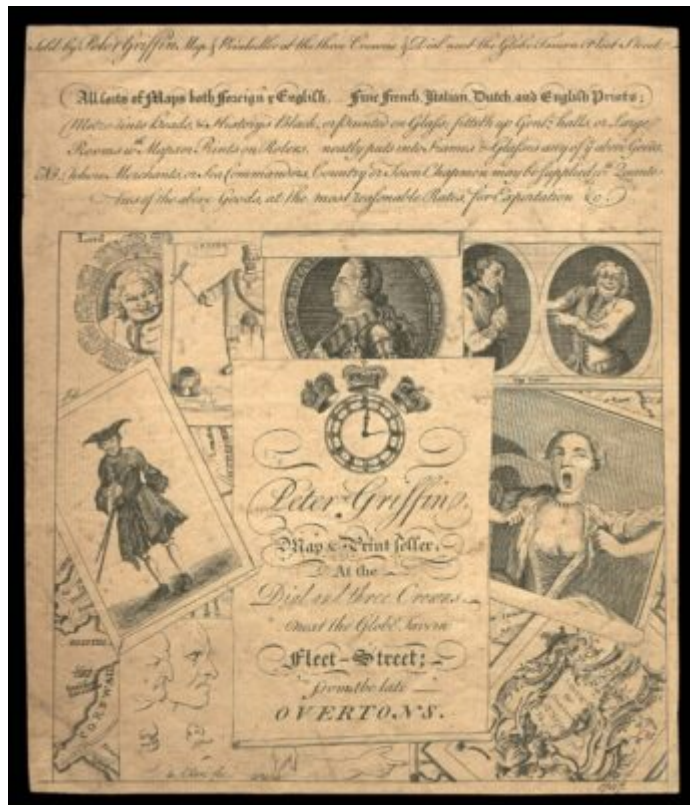 Sold by Peter Griffin Map & Printseller at the three Crowns & Dial next the Globe Tavern Fleet Street
All sorts of Maps both Foreign & English. Fine French, Italian, Dutch, and English Prints;
Metzo-tinto Heads, & History's Black, or Painted on Glass; fitteth up Gent.s halls, or Large
Rooms wth Maps or Prints on Rolers. neatly puts into Frames & Glasses any of ye above Goods,
NB. where Merchants, or Sea Commanders, Country or Town Chapmen may be supplied wth Quanti-
ties of the above Goods, at the most reasonable Rates, for Exportation &c.
Lord
Peter Griffin,
Map & Print seller.
At the
Dial and three Crowns
next the Globe Tavern
Fleet-Street;
from the late
OVERTON'S.